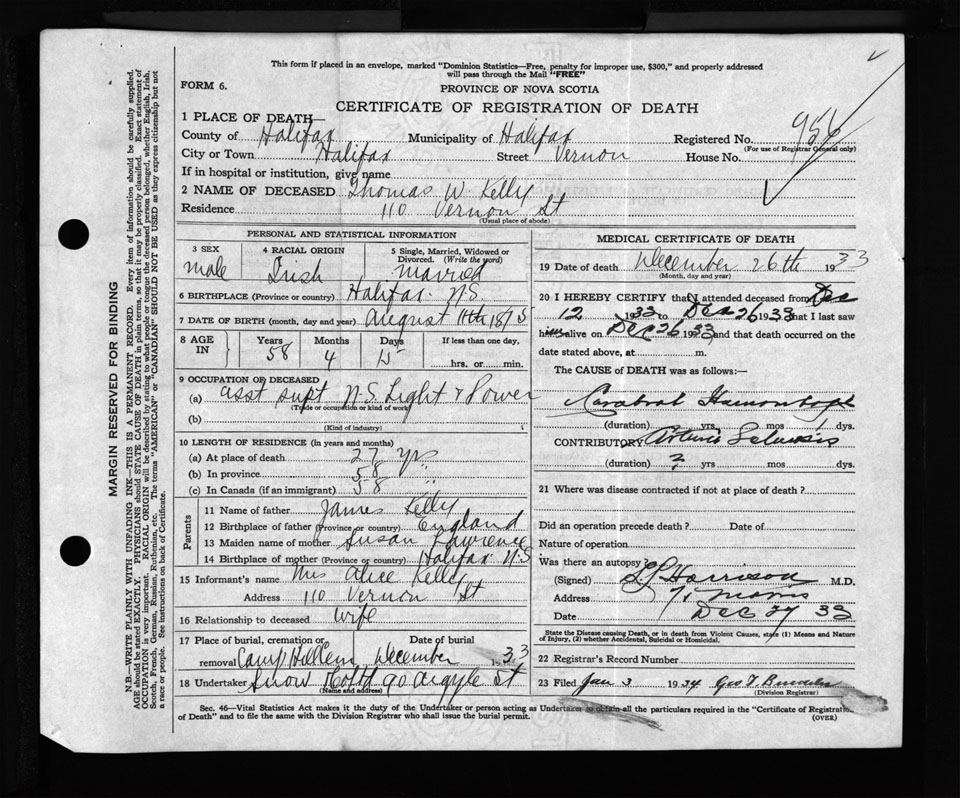 This form if placed in an envelope, marked "Dominion Statistics—Free, penalty for improper use, $300," and properly addressed
will pass through the Mail "FREE"
FORM 6.
PROVINCE OF NOVA SCOTIA
CERTIFICATE OF REGISTRATION OF DEATH
1 PLACE OF DEATH—
County of Halifax Municipality of Halifax Registered No. 956
(For use of Registrar General only)
City or Town Halifax Street Vernon House No.
If in hospital or institution, give name
2 NAME OF DECEASED Thomas W. Kelly
Residence 110 Vernon St
(Usual place of abode)
PERSONAL AND STATISTICAL INFORMATION
3 SEX male
4 RACIAL ORIGIN Irish
5 Single, Married, Widowed or Divorced. (Write the word) married
6 BIRTHPLACE (Province or country) Halifax N.S.
7 DATE OF BIRTH (month, day and year) August 11th 1875
8 AGE IN Years 58 Months 4 Days 15 If less than one day, hrs. or min.
9 OCCUPATION OF DECEASED
(a) asst supt N.S. Light & Power
(Trade or occupation or kind of work)
(b)
(Kind of industry)
10 LENGTH OF RESIDENCE (in years and months)
(a) At place of death 27 yrs
(b) In province 58 "
(c) In Canada (if an immigrant) 58 "
Parents
11 Name of father James Kelly
12 Birthplace of father (Province or country) England
13 Maiden name of mother Susan Lawrence
14 Birthplace of mother (Province or country) Halifax N.S
15 Informant's name Mrs Alice Kelly
Address 110 Vernon St
16 Relationship to deceased wife
17 Place of burial, cremation or removal Camp Hill Cem Date of burial December 1933
18 Undertaker Snow 90 Argyle St
(Name and address)
MEDICAL CERTIFICATE OF DEATH
19 Date of death December 26th 1933
(Month, day and year)
20 I HEREBY CERTIFY that I attended deceased from Dec
12 1933 to Dec 26 1933 that I last saw
him alive on Dec 26 1933 and that death occurred on the
date stated above, at m.
The CAUSE of DEATH was as follows:—
(duration) yrs mos dys.
CONTRIBUTORY
(duration) ? yrs mos dys.
21 Where was disease contracted if not at place of death?
Did an operation precede death? Date of
Nature of operation
Was there an autopsy?
(Signed) Harrison M.D.
Address 71 Morris
Date Dec 27 33
State the Disease causing Death, or in death from Violent Causes, state (1) Means and Nature
of Injury, (2) whether Accidental, Suicidal or Homicidal.
22 Registrar's Record Number
23 Filed Jan 3 1934 Geo
(Division Registrar)
Sec. 46—Vital Statistics Act makes it the duty of the Undertaker or person acting as Undertaker to obtain all the particulars required in the "Certificate of Registration
of Death" and to file the same with the Division Registrar who shall issue the burial permit.
(OVER)
MARGIN RESERVED FOR BINDING
N.B.—WRITE PLAINLY WITH UNFADING INK—THIS IS A PERMANENT RECORD. Every item of information should be carefully supplied.
AGE should be stated EXACTLY. PHYSICIANS should STATE CAUSE OF DEATH in plain terms, so that it may be properly classified. Exact statement of
OCCUPATION is very important. RACIAL ORIGIN will be described by stating to what people or tongue the deceased person belonged, whether English, Irish,
Scotch, French, German, Russian, Ruthenian, etc. The terms "AMERICAN" or "CANADIAN" SHOULD NOT BE USED as they express citizenship but not
a race or people. See instructions on back of Certificate.